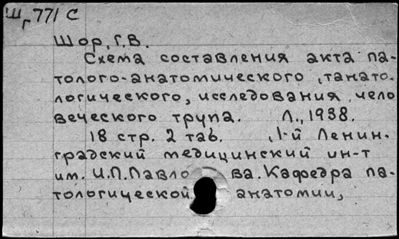 Шг771 С
Шор, Г.В.
Схема составления акта па-
толого-анатомического, танато.
логического, исследования чело
веческого трупа. Л., 1938.
18 стр. 2 таб. 1-й Ленин.
градский медицинский ин-т
им. И.П.Павло ва. Кафедра па-
тологической анатомии,